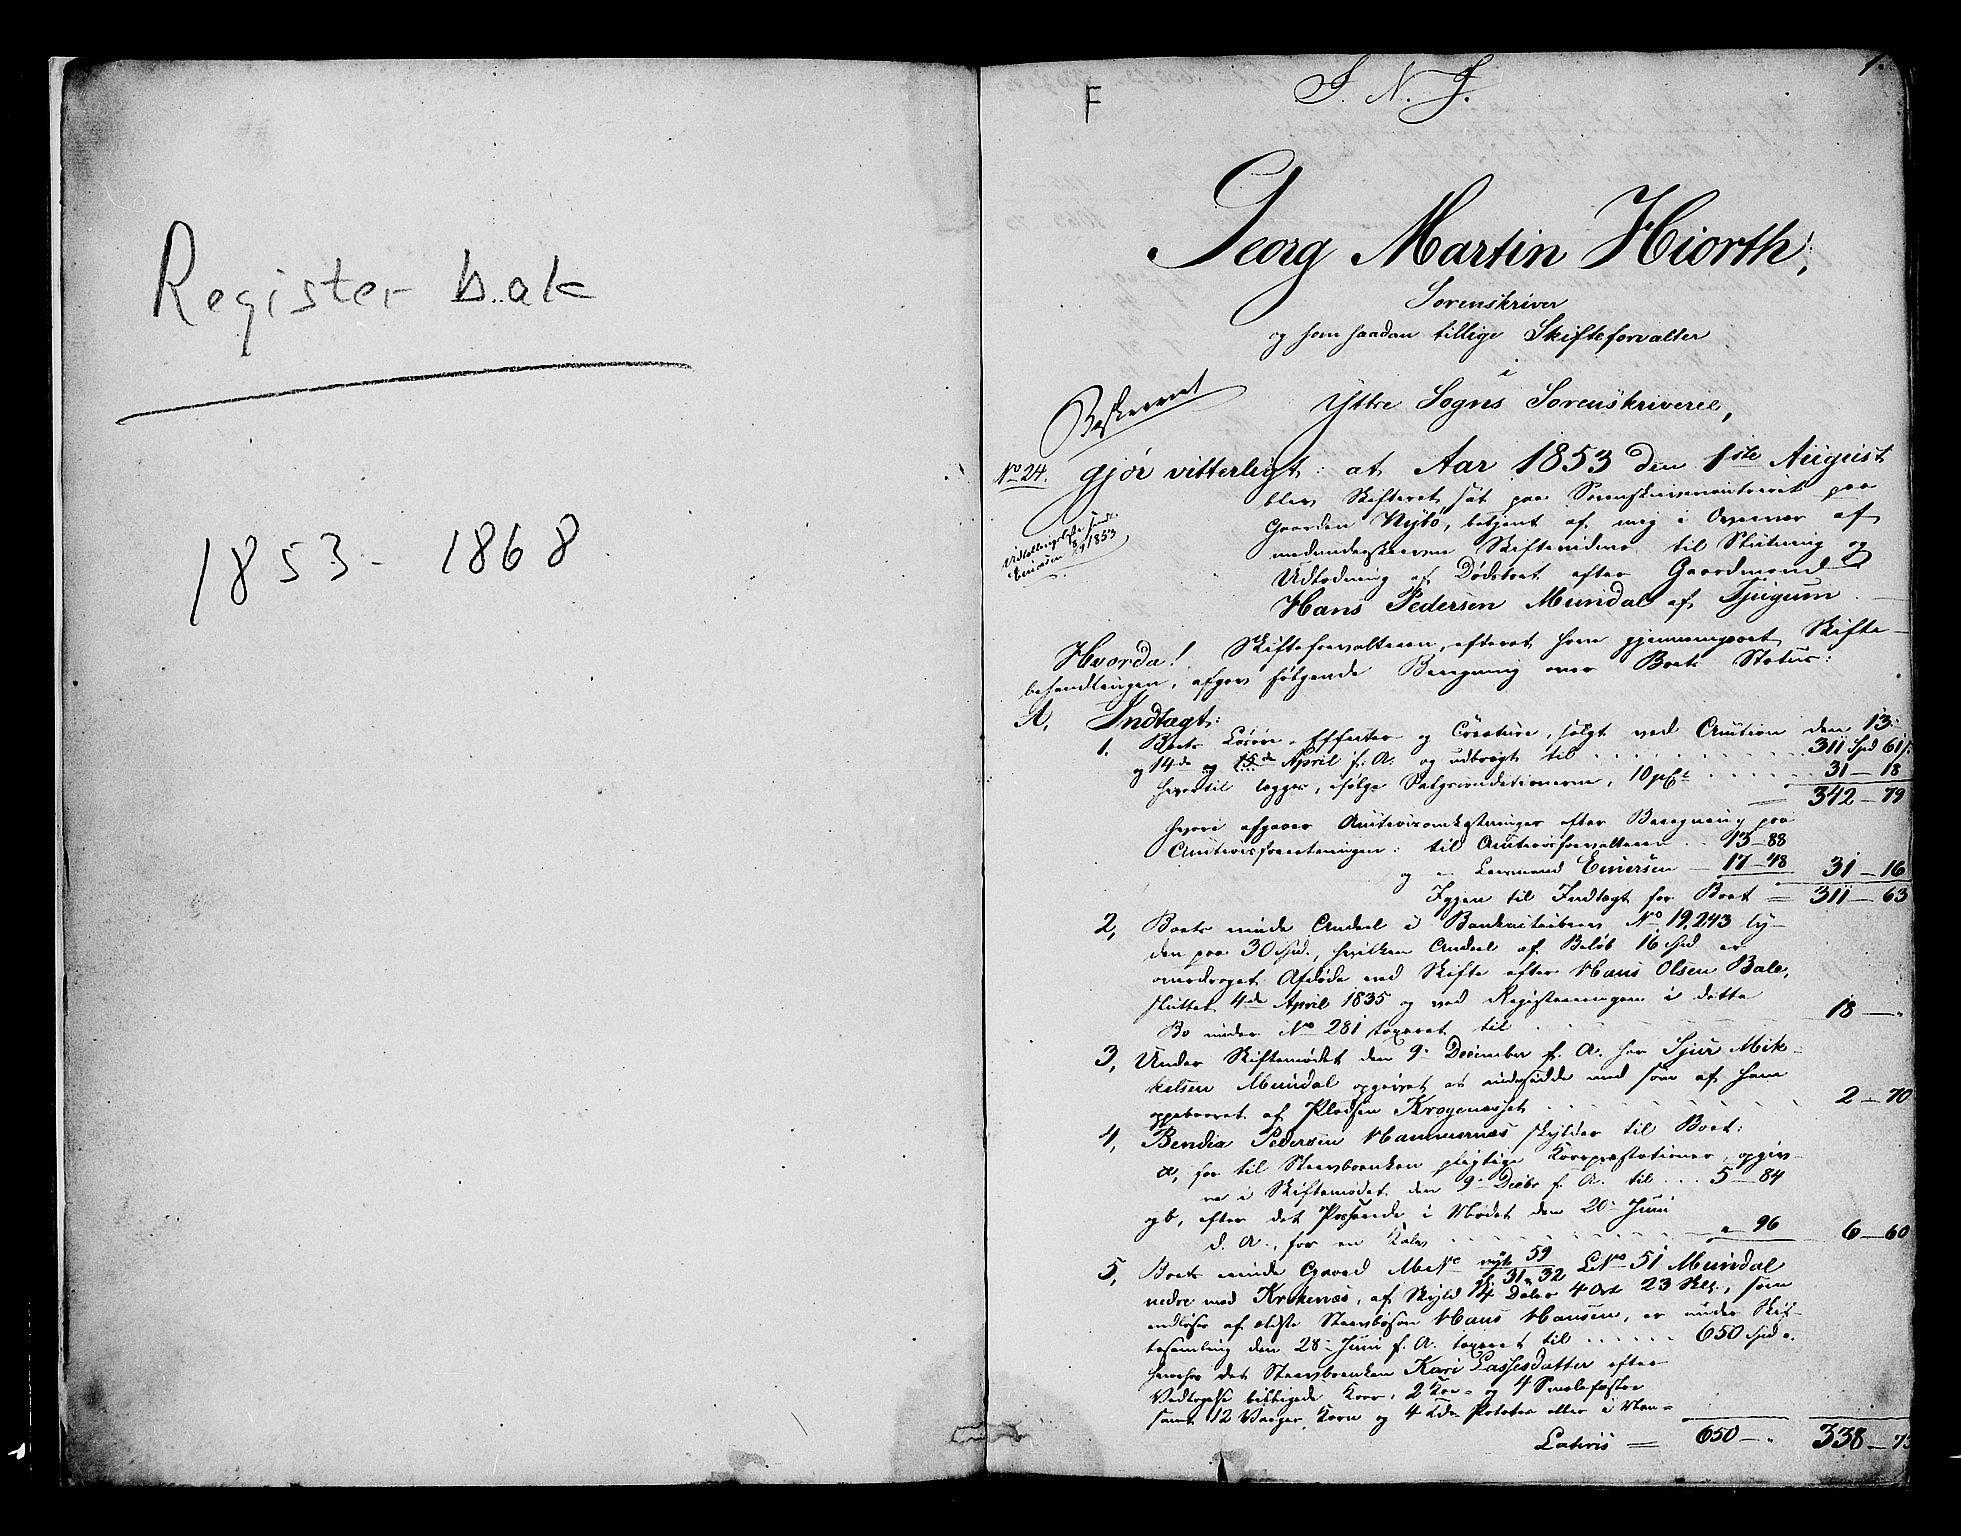 Register bak
1853 - 1868
1.
F
I. N. J.
Georg Martin Hiorth,
Sorenskriver
og som saadan tillige Skifteforvalter
i
Yttre Sogns Sorenskriverie,
Beskrevet
No 24. gjør vitterligt: at Aar 1853 den 1ste August
blev Skifteret sat paa Sorenskrivercontoiret paa
Gaarden Nybø, betjent af mig i Overvær af
medunderskrevne Skiftevidner til Slutning og
Udlodning af Dødsboet efter Gaardmand
Hans Pedersen Mundal af Tjugum.
Hvorda! Skifteforvalteren, efterat have gjennemgaaet Skifte-
behandlingen, afgav følgende Beregning over Boets Status:
A. Indtægt:
1. Boets Løsøre-Effecter og Creature, solgt ved Auction den 13
og 14de og 15de April f. A. og udbragt til 311 Spd 61 s.
hvortil lægges, ifølge Salgsconditionerne, 10 pCt 31 – 18
342 – 79
hvori afgaaer Auctionsomkostninger efter Beregning paa
Auctionsforretningen: til Auctionsforvalteren 13 – 88
og – Lensmand Einersen 17 – 48 31 – 16
Igjen til Indtægt for Boet = 311 – 63
2, Boets eiende Andeel i No 19,243 ly-
den paa 30 Spd., hvilken Andeel af Beløb 16 Spd er
overdraget Afdøde ved Skifte efter Hans Olsen Bale,
sluttet 4de April 1835 og ved Registreringen i dette
Bo under No 281 taxeret til 18 – "
3, Under Skiftemødet den 9. December f. A. har Sjur Mik-
kelsen Mundal opgivet at indesidde med som af ham
oppebaaret af Pladsen Krogenæsset 2 – 70
4, Bendix Pedersen Hammernæs skylder til Boet:
a, for til Stervboenken pligtige Korpræstationer, opgiv-
ne i Skiftemødet den 9. Decbr f. A. til 5 – 84
og b, efter det Passerede i Mødet den 20. Juni
d. A., for en Kalv " 96 6 – 60
5, Boets eiende Gaard MNo nyt 59 LNo 51 Mundal
gl. 31 " 32
nedre med Krokenæs, af Skyld 4 Daler 4 Ort 23 Skl., som
indløses af ældste Stervbosøn Hans Hansen, er under Skif-
tesamling den 28. Juni f. A. taxeret til 650 Spd ".
hvorhos det Stervboenken Kari Lassesdatter efter
Vedtagelse tilligede Kaar, 2 Koe- og 4 Smalefostre
samt 12 Vaager Korn og 4 Tdr Poteter eller i Man-
Lateris = 650 – " 338 – 73